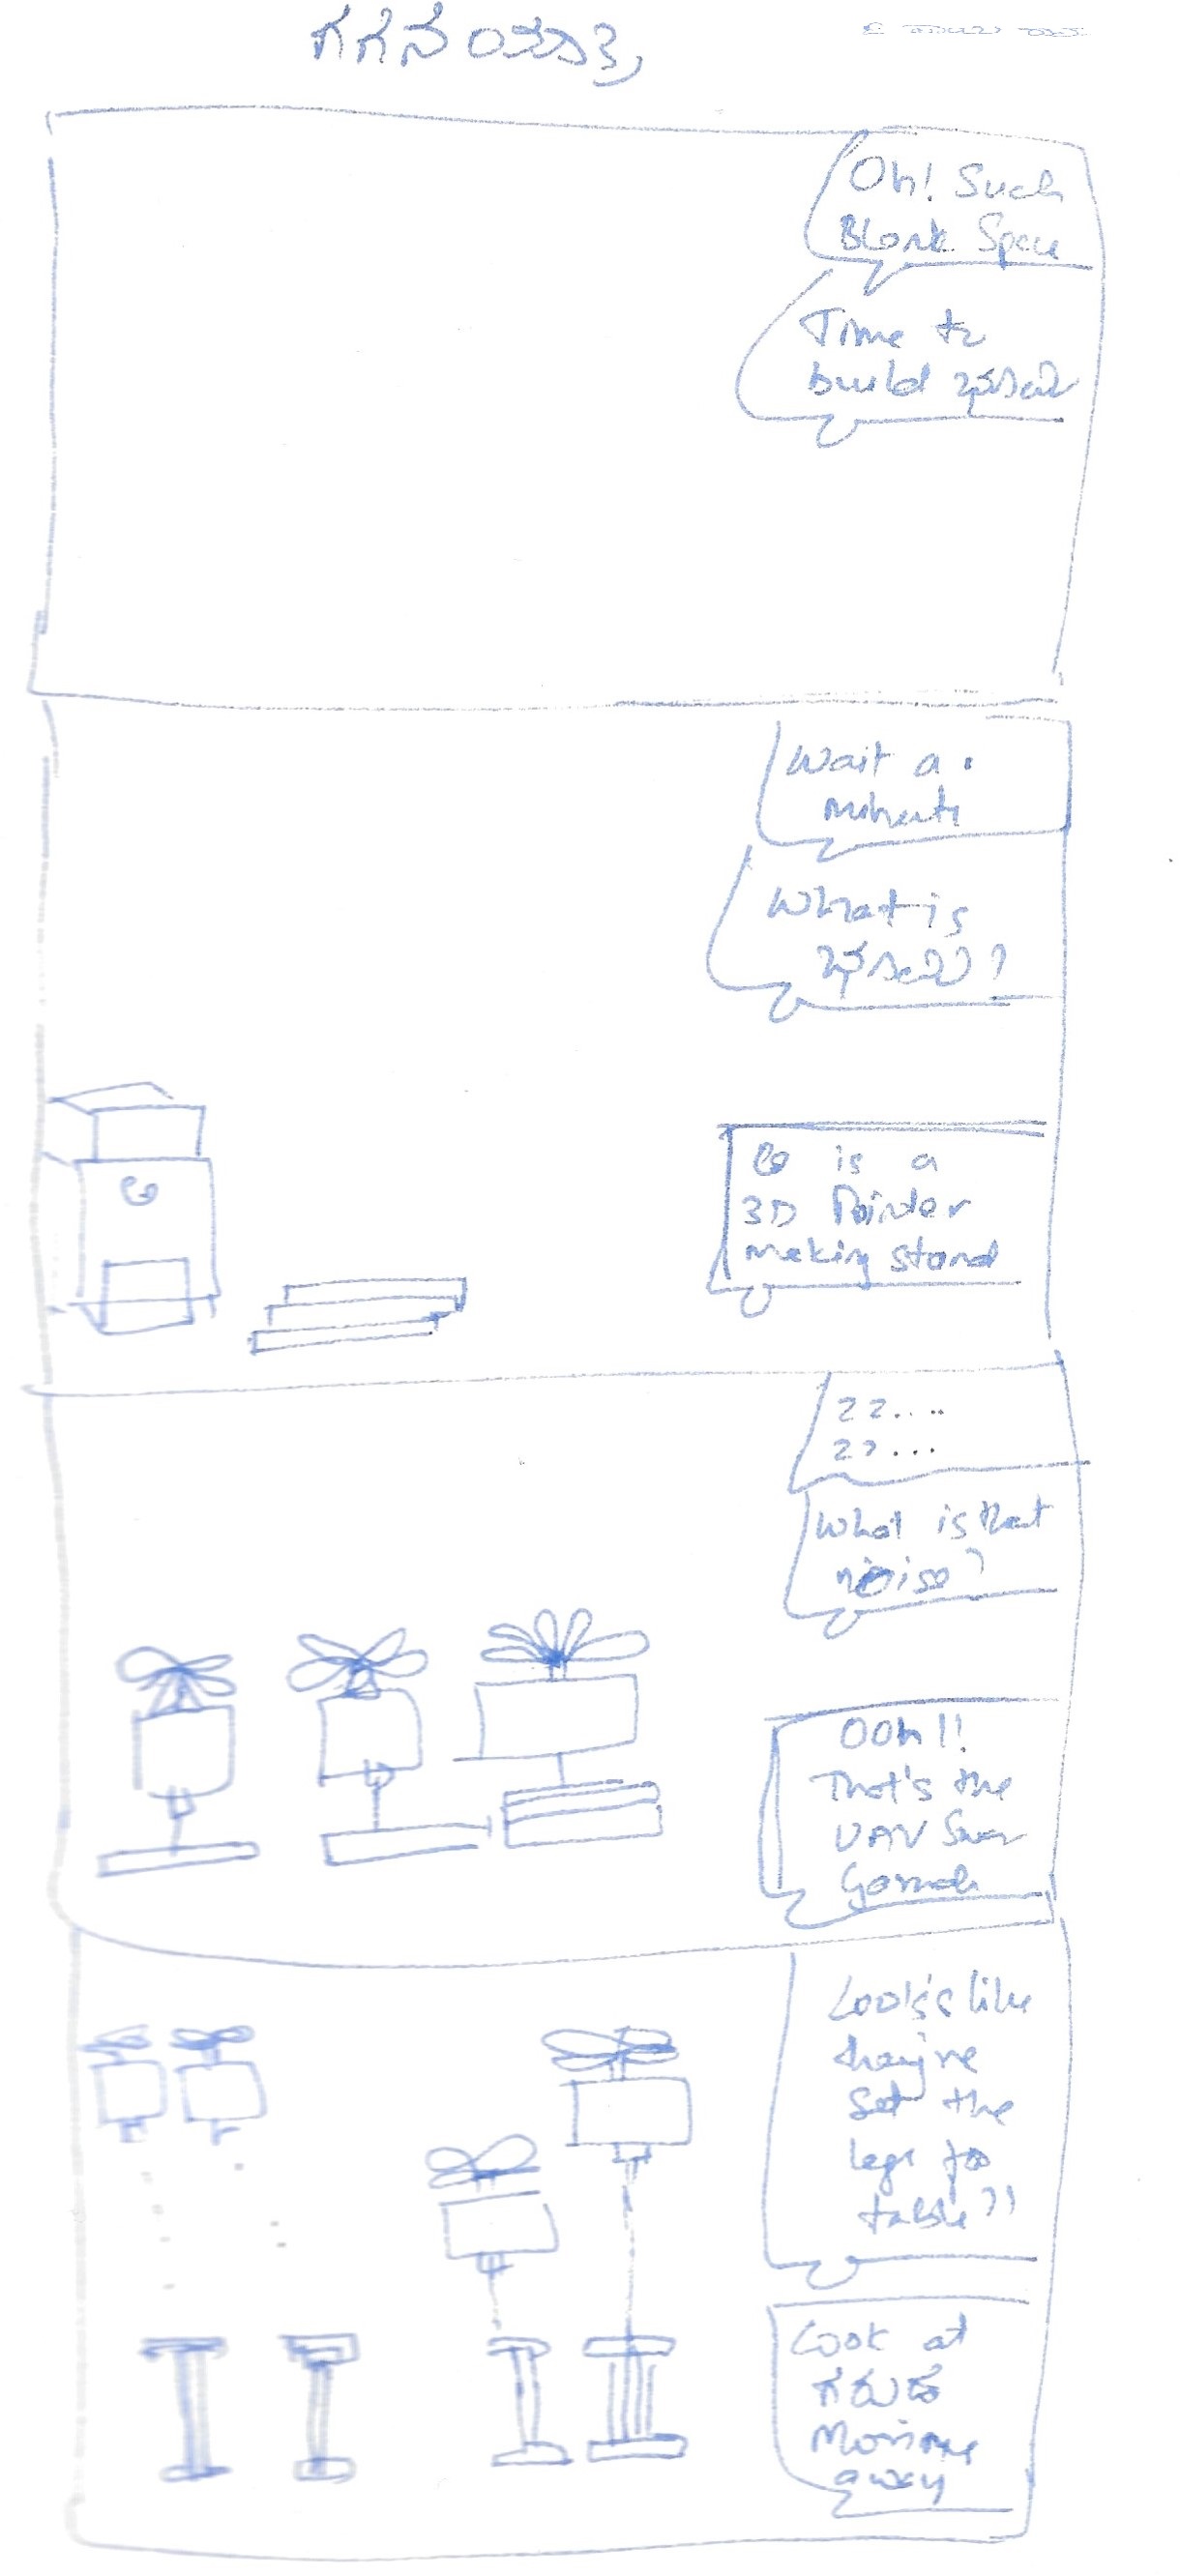 ಗಗನಯಾತ್ರಿ
Oh! Such
Blank Space
Time to
build
Wait a
minute
What is
is a
3D Printer
making stand
What is that
noise?
Ooh!!
That's the
UAV
Look's like
they're
set the
legs for
table?!
Look at
ಗರುಡ
Moving
away